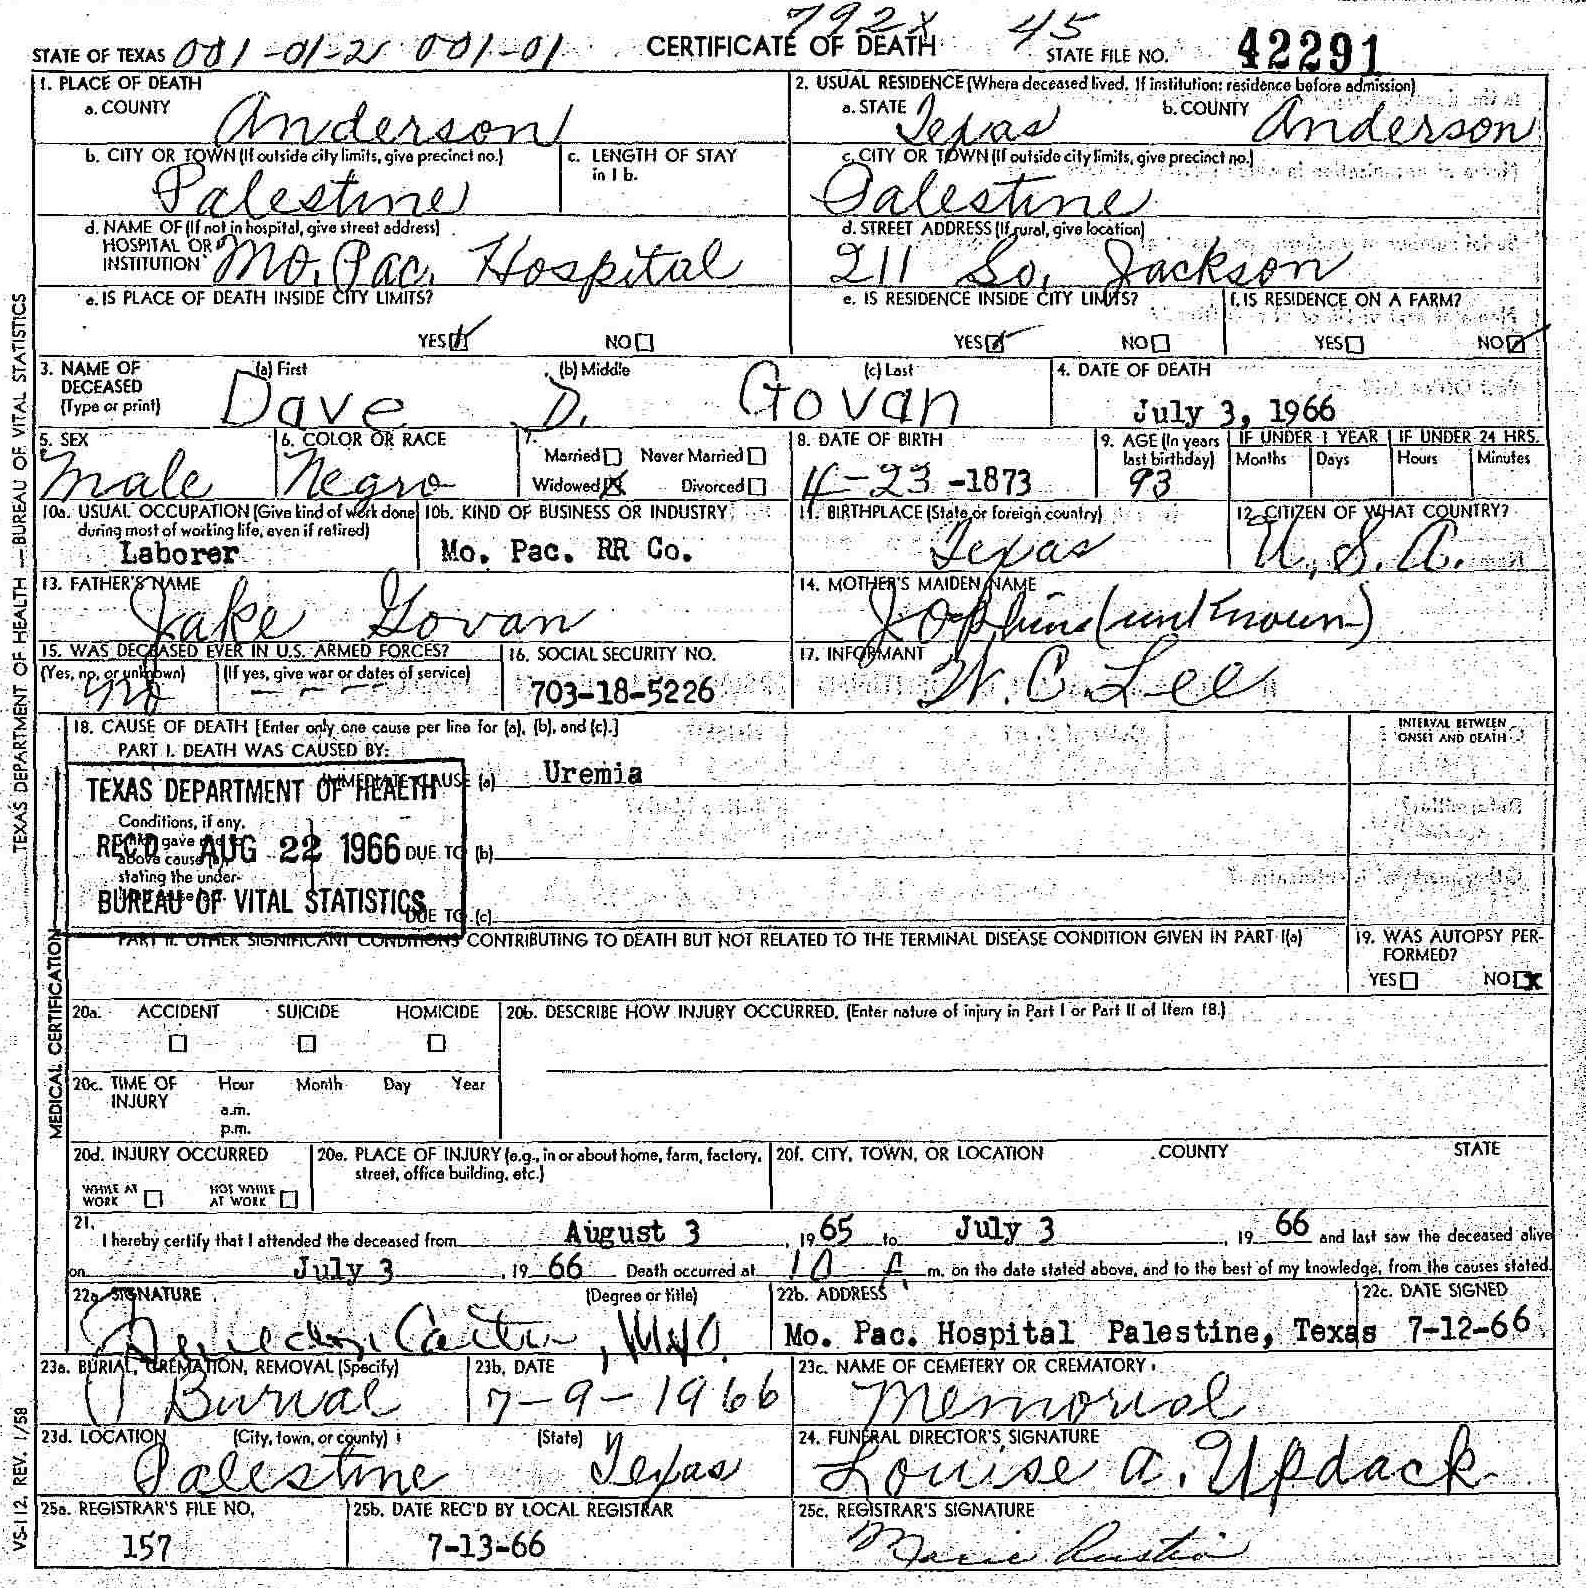 792X 45
STATE OF TEXAS 001-01-2 001-01 CERTIFICATE OF DEATH STATE FILE NO. 42291
1. PLACE OF DEATH
a. COUNTY Anderson
2. USUAL RESIDENCE (Where deceased lived. If institution: residence before admission)
a. STATE Texas b. COUNTY Anderson
b. CITY OR TOWN (If outside city limits, give precinct no.) Palestine
c. LENGTH OF STAY in 1 b.
c. CITY OR TOWN (If outside city limits, give precinct no.) Palestine
d. NAME OF (If not in hospital, give street address)
HOSPITAL OR
INSTITUTION Mo. Pac. Hospital
d. STREET ADDRESS (If rural, give location)
211 So. Jackson
e. IS PLACE OF DEATH INSIDE CITY LIMITS?
YES NO
e. IS RESIDENCE INSIDE CITY LIMITS?
YES NO
f. IS RESIDENCE ON A FARM?
YES NO
3. NAME OF DECEASED (Type or print)
(a) First (b) Middle (c) Last
Dave D. Govan
4. DATE OF DEATH
July 3, 1966
5. SEX
Male
6. COLOR OR RACE
Negro
7.
Married Never Married
Widowed X Divorced
8. DATE OF BIRTH
4-23-1873
9. AGE (In years last birthday)
93
IF UNDER 1 YEAR
Months Days
IF UNDER 24 HRS.
Hours Minutes
10a. USUAL OCCUPATION (Give kind of work done
during most of working life, even if retired)
Laborer
10b. KIND OF BUSINESS OR INDUSTRY
Mo. Pac. RR Co.
11. BIRTHPLACE (State or foreign country)
Texas
12. CITIZEN OF WHAT COUNTRY?
U.S.A.
13. FATHER'S NAME
Jake Govan
14. MOTHER'S MAIDEN NAME
(unknown)
15. WAS DECEASED EVER IN U.S. ARMED FORCES?
(Yes, no, or unknown) (If yes, give war or dates of service)
No - - - -
16. SOCIAL SECURITY NO.
703-18-5226
17. INFORMANT
W. C. Lee
18. CAUSE OF DEATH [Enter only one cause per line for (a), (b), and (c).]
PART I. DEATH WAS CAUSED BY:
IMMEDIATE CAUSE (a) Uremia
INTERVAL BETWEEN
ONSET AND DEATH
TEXAS DEPARTMENT OF HEALTH
REC'D AUG 22 1966
BUREAU OF VITAL STATISTICS
Conditions, if any,
which gave rise to
above cause (a),
stating the under-
DUE TO (b)
DUE TO (c)
PART II. OTHER SIGNIFICANT CONDITIONS CONTRIBUTING TO DEATH BUT NOT RELATED TO THE TERMINAL DISEASE CONDITION GIVEN IN PART I(a)
19. WAS AUTOPSY PER-
FORMED?
YES NO X
20a. ACCIDENT SUICIDE HOMICIDE
20b. DESCRIBE HOW INJURY OCCURRED. (Enter nature of injury in Part I or Part II of Item 18.)
20c. TIME OF INJURY
Hour Month Day Year
a.m.
p.m.
20d. INJURY OCCURRED
WHILE AT WORK NOT WHILE AT WORK
20e. PLACE OF INJURY (e.g., in or about home, farm, factory,
street, office building, etc.)
20f. CITY, TOWN, OR LOCATION COUNTY STATE
21.
I hereby certify that I attended the deceased from August 3, 1965 to July 3, 1966 and last saw the deceased alive
on July 3, 1966 Death occurred at 10 A. m. on the date stated above, and to the best of my knowledge, from the causes stated.
22a. SIGNATURE (Degree or title)
Carter, M.D.
22b. ADDRESS
Mo. Pac. Hospital Palestine, Texas
22c. DATE SIGNED
7-12-66
23a. BURIAL, CREMATION, REMOVAL (Specify)
Burial
23b. DATE
7-9-1966
23c. NAME OF CEMETERY OR CREMATORY
Memorial
23d. LOCATION (City, town, or county) (State)
Palestine Texas
24. FUNERAL DIRECTOR'S SIGNATURE
Louise A. Updack
25a. REGISTRAR'S FILE NO.
157
25b. DATE REC'D BY LOCAL REGISTRAR
7-13-66
25c. REGISTRAR'S SIGNATURE
Marie Austin
TEXAS DEPARTMENT OF HEALTH — BUREAU OF VITAL STATISTICS
MEDICAL CERTIFICATION
VS-112. REV. 1/58